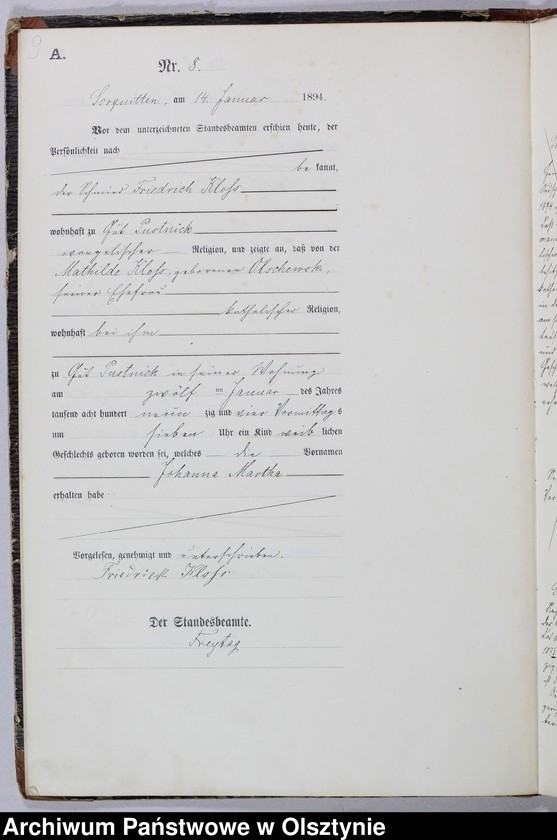 9
A.
Nr. 8.
Sorquitten, am 14. Januar 1894.
Vor dem unterzeichneten Standesbeamten erschien heute, der
Persönlichkeit nach
be kannt,
der Schmied Friedrich Kloss
wohnhaft zu Gut Pustnick
evangelischer Religion, und zeigte an, daß von der
Mathilde Kloss, geborenen
seiner Ehefrau
katholischer Religion,
wohnhaft bei ihm
zu Gut Pustnick in seiner Wohnung
am zwölf ten Januar des Jahres
tausend acht hundert neun zig und vier Vormittags
um sieben Uhr ein Kind weib lichen
Geschlechts geboren worden sei, welches die Vornamen
Johanna Martha
erhalten habe
Vorgelesen, genehmigt und unterschrieben.
Friedrich Kloss
Der Standesbeamte.
Freytag
Archiwum Państwowe w Olsztynie